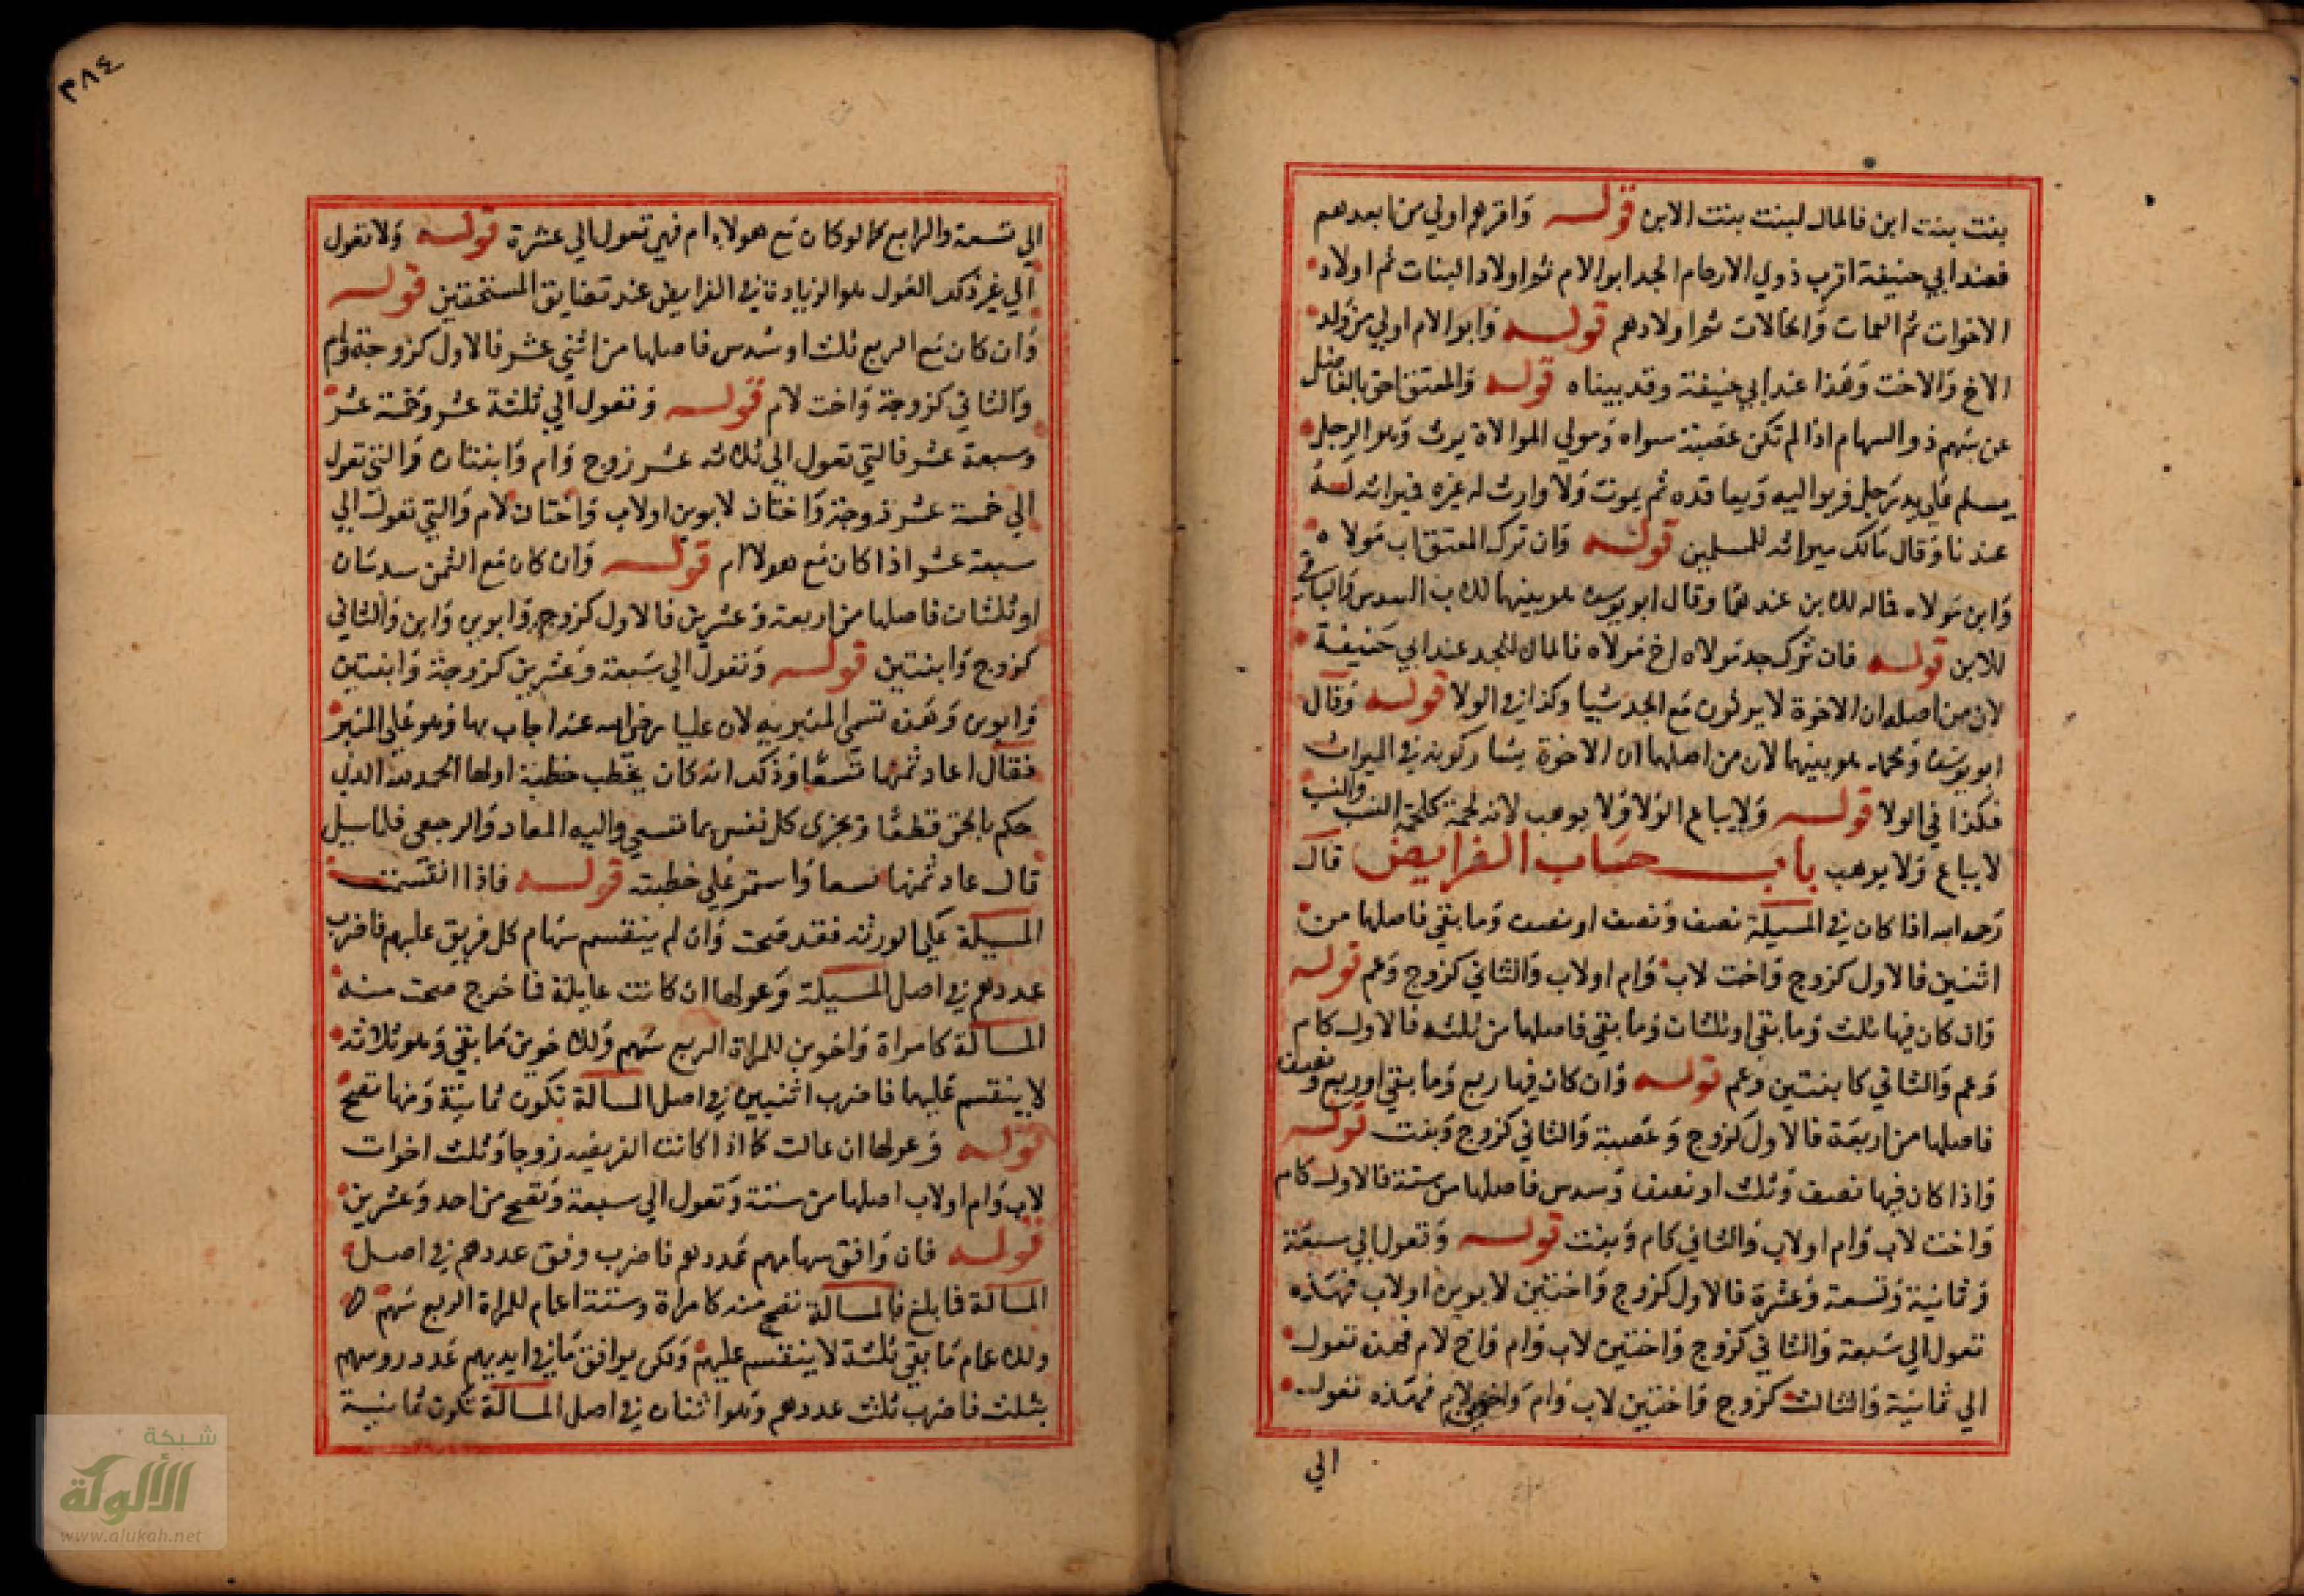 بنت بنت ابن فالمال لبنت بنت الابن قوله واقربهم اولي من ابعدهم
فعند ابي حنيفة اقرب ذوي الارحام الجد ابو الام ثم اولاد البنات ثم اولاد
الاخوات ثم العمات والخالات ثم اولادهم قوله وابو الام اولي من ولد
الاخ والاخت وهذا عند ابي حنيفة وقد بيناه قوله والمعتق احق بالفاضل
عن سهم ذو السهام اذا لم تكن عصبة سواه ومولي الموالاة يرث وهو الرجل
يسلم علي يد رجل ويواليه ويعاقده ثم يموت ولا وارث له غيره فميراثه له
عندنا وقال مالك ميراثه للمسلمين قوله وان ترك المعتق اب مولاه
وابن مولاه فماله للابن عندهما وقال ابو يوسف هو بينهما للاب السدس والباقي
للابن قوله فان ترك جد مولاه اخ مولاه فالمال للجد عند ابي حنيفة
لان من اصله ان الاخوة لا يرثون مع الجد شيا وكذا في الولا قوله وقال
ابو يوسف ومحمد هو بينهما لان من اصلهما ان الاخوة يشاركونه في الميراث
فكذا في الولا قوله ولا يباع الولا ولا يوهب لانه لحمة كلحمة النسب والنسب
لا يباع ولا يوهب باب حساب الفرايض قال
رحمه الله اذا كان في المسيلة نصف ونصف او نصف وما بقي فاصلها من
اثنين فالاول كزوج واخت لاب وام اولاب والثاني كزوج وعم قوله
وان كان فيها ثلث وما بقي او ثلثان وما بقي فاصلها من ثلثه فالاول كام
وعم والثاني كابنتين وعم قوله وان كان فيها ربع وما بقي او ربع ونصف
فاصلها من اربعة فالاول كزوج وعصبة والثاني كزوج وبنت قوله
واذا كان فيها نصف وثلث او نصف وسدس فاصلها من ستة فالاول كام
واخت لاب وام اولاب والثاني كام وبنت قوله وتعول الي سبعة
وثمانية وتسعة وعشرة فالاول كزوج واختين لابوين اولاب فهذه
تعول الي سبعة والثاني كزوج واختين لاب وام واخ لام فهذه تعول
الي ثمانية والثالث كزوج واختين لاب وام واخوين لام فهذه تعول
الي
٣٨٤
الي تسعة والرابع كما لو كان مع هولاء ام فهي تعول الي عشرة قوله ولا تعول
الي غير ذلك العول هو الزيادة في الفرايض عند تضايق المستحقين قوله
وان كان مع الربع ثلث او سدس فاصلها من اثني عشر فالاول كزوجة وام
والثاني كزوجة واخت لام قوله وتعول الي ثلثة عشر وخمسة عشر
وسبعة عشر فالتي تعول الي ثلاثه عشر زوج وام وابنتان والتي تعول
الي خمسة عشر زوجة واختان لابوين اولاب واختان لام والتي تعول الي
سبعة عشر اذا كان مع هولا ام قوله وان كان مع الثمن سدسان
او ثلثان فاصلها من اربعة وعشرين فالاول كزوج وابوين وابن والثاني
كزوج وابنتين قوله وتعول الي سبعة وعشرين كزوجة وابنتين
وابوين وهذه تسمي المنبريه لان عليا رضي الله عنه اجاب بها وهو علي المنبر
فقال عاد ثمنها تسعا وذكر انه كان يخطب خطبة اولها الحمد لله الذي
حكم بالحق قطعا ويجزي كل نفس بما تسعي واليه المعاد والرجعي فلما سيل
قال عاد ثمنها تسعا واستمر علي خطبته قوله فاذا انقسمت
المسيلة علي الورثه فقد صحت وان لم ينقسم سهام كل فريق عليهم فاضرب
عددهم في اصل المسيلة وعولها ان كانت عايلة فما خرج صحت منه
المسالة كامراة واخوين للمراة الربع سهم وللاخوين ما بقي وهو ثلاثه
لا ينقسم عليهما فاضرب اثنين في اصل المسالة تكون ثمانية ومنها تصح
قوله وعولها ان عالت كما اذا كانت الفريضه زوجا وثلث اخوات
لاب وام اولاب اصلها من ستة وتعول الي سبعة وتصح من احد وعشرين
قوله فان وافق سهامهم عددهم فاضرب وفق عددهم في اصل
المسالة فما بلغ فالمسالة تصح منه كامراة وستة اعمام للمراة الربع سهم
وللاعمام ما بقي ثلثة لا ينقسم عليهم ولكن يوافق ما في ايديهم عدد روسهم
بثلث فاضرب ثلث عددهم وهو اثنان في اصل المسالة تكون ثمانية
شبكة
الألوكة
www.alukah.net